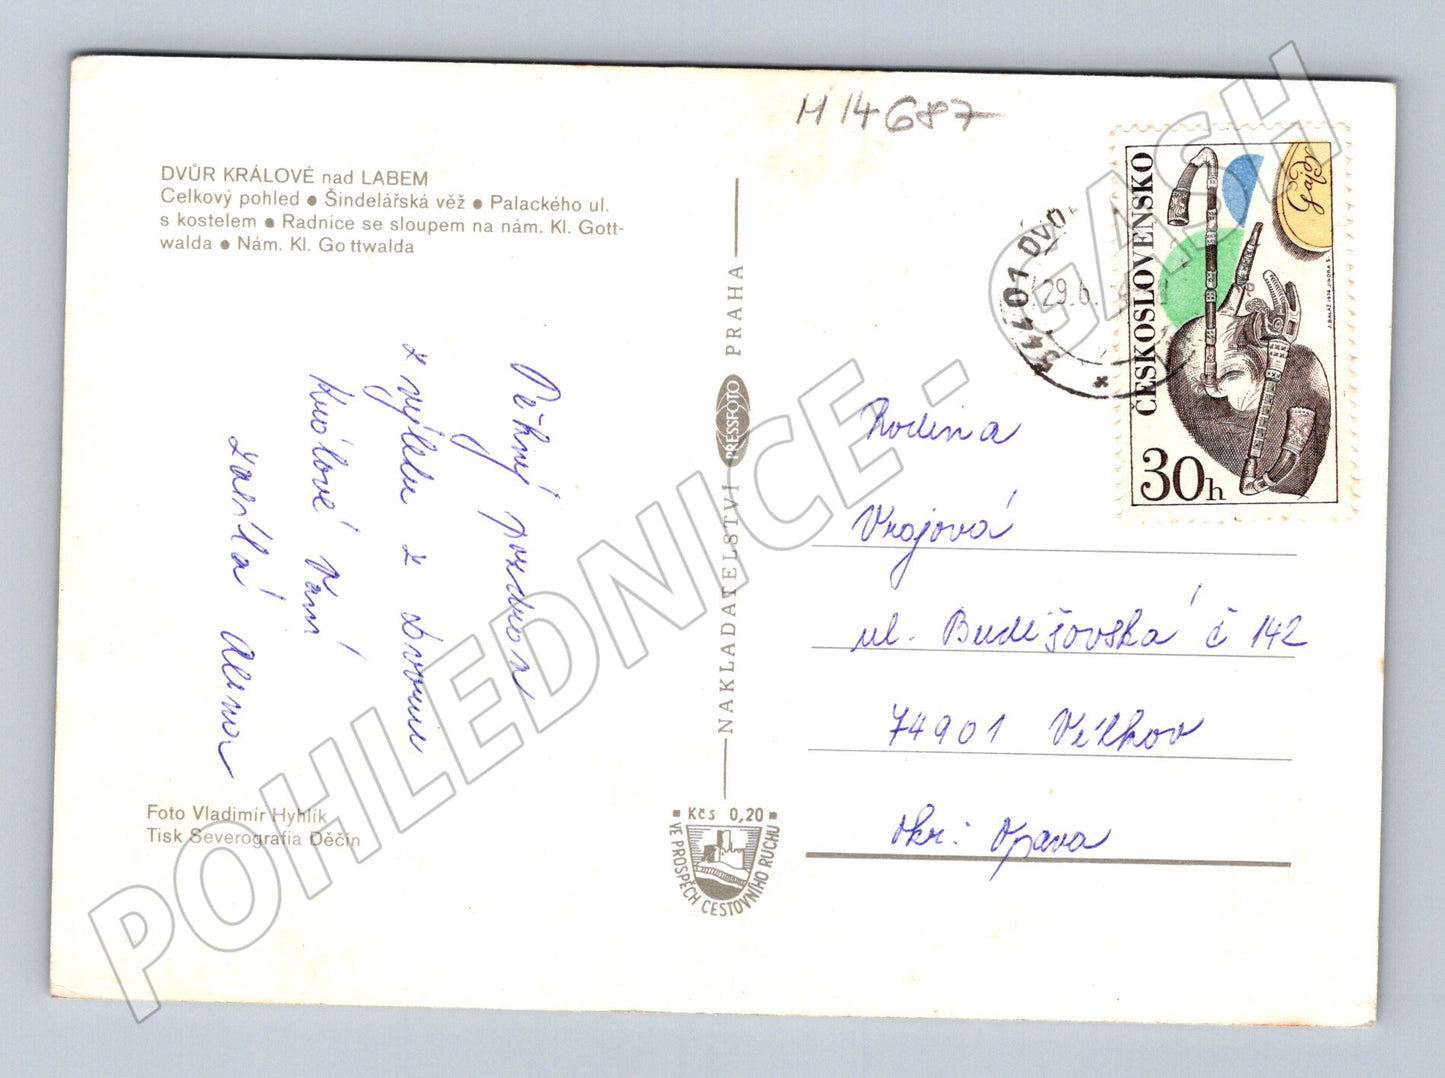 H 14687
DVŮR KRÁLOVÉ nad LABEM
Celkový pohled ● Šindelářská věž ● Palackého ul.
s kostelem ● Radnice se sloupem na nám. Kl. Gott-
walda ● Nám. Kl. Go ttwalda
Pěkný pozdrav
z výletu z Dvora
Králové Vám
zasílá Alena
Foto Vladimír Hyhlík
Tisk Severografia Děčín
NAKLADATELSTVÍ PRESSFOTO PRAHA
Kčs 0,20
VE PROSPĚCH CESTOVNÍHO RUCHU
544 01 DVŮ
29.6.
ČESKOSLOVENSKO
30h
J. BALÁŽ 1974 JINDRA S.
Rodina
Vrajová
ul. Budišovská č 142
74901 Vítkov
okr. Opava
POHLEDNICE - GASH